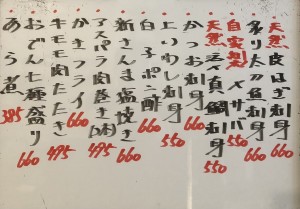 天然 皮はぎ刺身 660
炙り太刀魚刺身 660
自家製 〆サバ
天然 真鯛刺身 550
かつお刺身 660
上いわし刺身 550
白子ポン酢 660
新さんま塩焼き 660
アスパラ肉巻き 495
かきフライ 660
牛モモ肉たたき 495
おでん七種盛り 660
あら煮 385